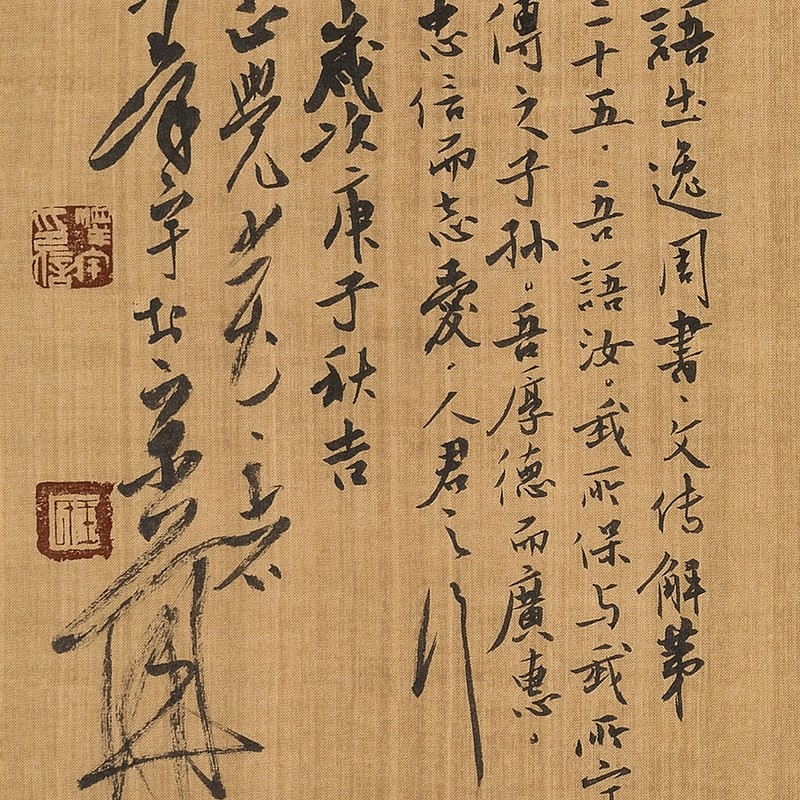 語出逸周書、文传解第
二十五.吾語汝。我所保与我所守
傳之子孙。吾厚德而廣惠。
忠信而志愛.人君之行
歲次庚子秋吉
正覺
於京